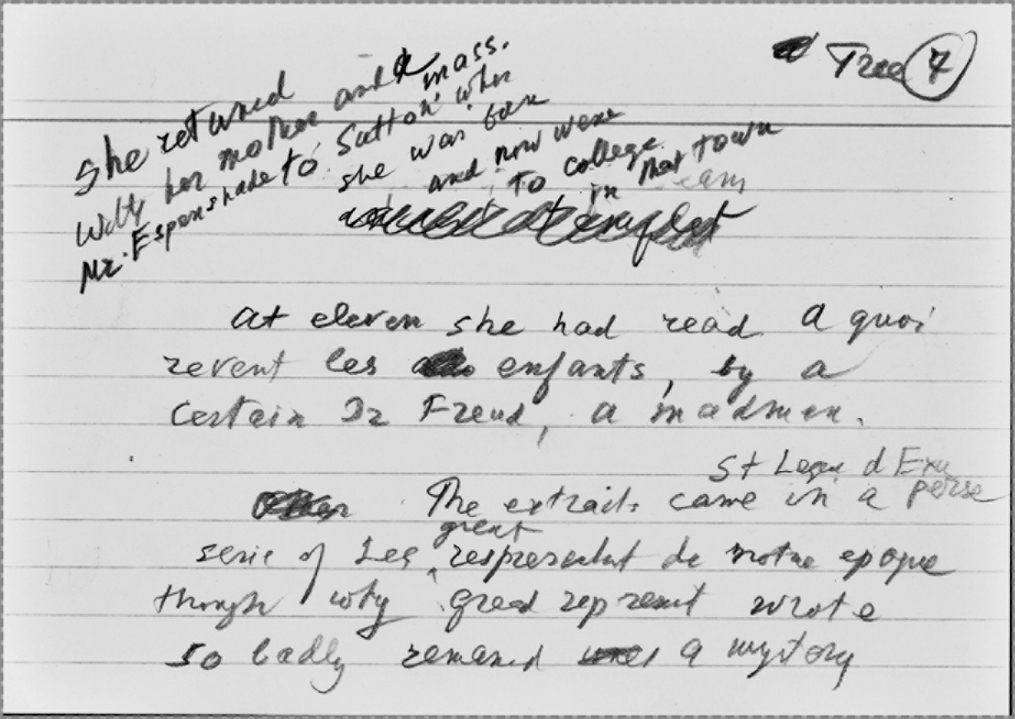 Tree 7
she returned
with her mother and mass.
Mr. Espenshade to Sutton wher
she was born
and now were
to college
in that town
at eleven she had read a quoi
revent les enfants, by a
certain Dr Freud, a madman.
St Leger d'Exu perse
The extraits came in a
serie of Les great respresentant de notre epoque
though why great represent wrote
so badly remaned a mystory